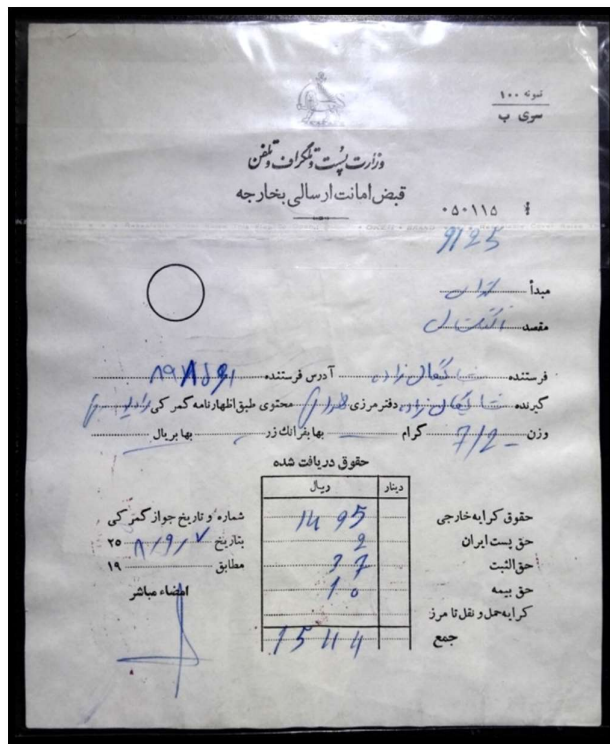 نمونه ۱۰۰
سری ب
وزارت پست و تلگراف و تلفن
قبض امانت ارسالی بخارجه
۰۵۰۱۱۵
9125
مبدأ تهران
مقصد انگلستان
فرستنده آدرس فرستنده
گیرنده دفتر مرزی محتوی طبق اظهارنامه گمرکی
وزن 7/2 گرام بهابفرانك زر بها بریال
حقوق دریافت شده
دینار ریال
حقوق کرایه خارجی 1495
حق پست ایران 2
حق الثبت 37
حق بیمه 10
کرایه حمل و نقل تا مرز
جمع 1544
شماره و تاریخ جواز گمرکی
بتاریخ ۸/۹/۷ ۲۵
مطابق ۱۹
امضاء مباشر